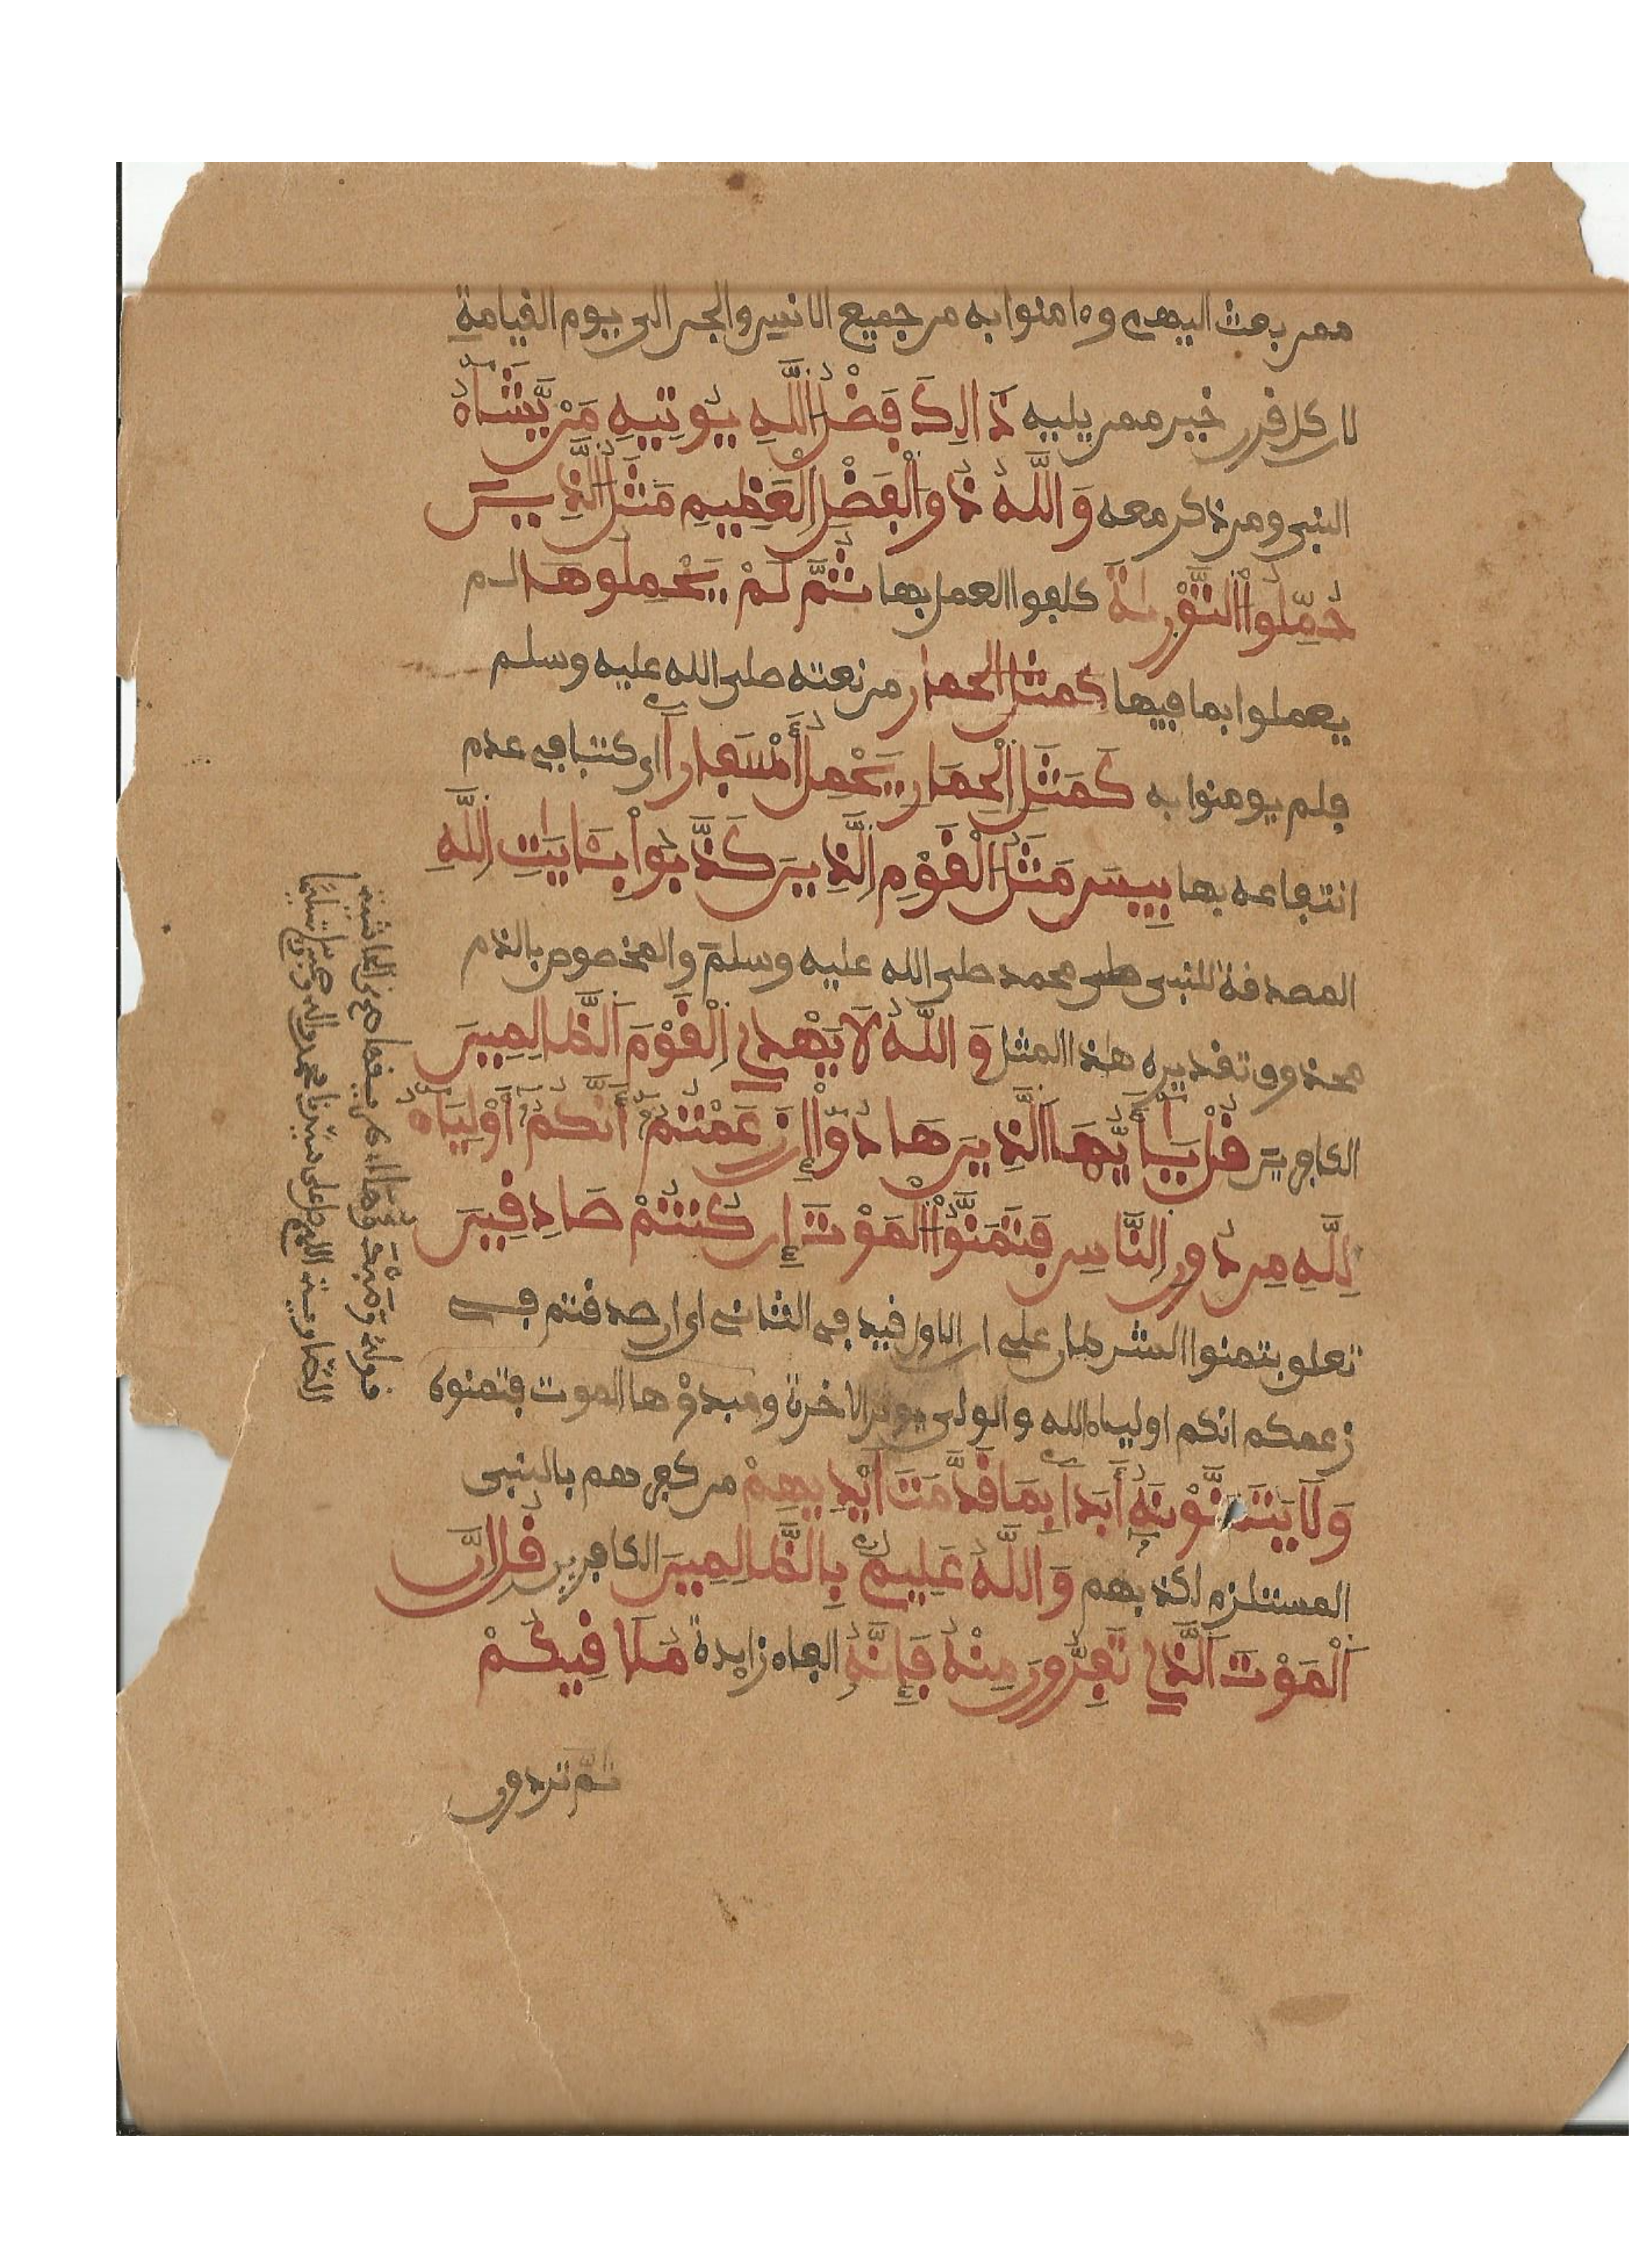 ممن بعث اليهم وءامنوا به من جميع الانس والجن الى يوم القيامة
لان كل قرن خير ممن يليه ذَٰالِكَ فَضْلُ اللَّهِ يُوتِيهِ مَنْ يَّشَآءُ
النبي ومن ذكر معه وَاللَّهُ ذُو الْفَضْلِ الْعَظِيمِ مَثَلُ الَّذِينَ
حُمِّلُوا التَّوْرَيٰةَ كلفوا العمل بها ثُمَّ لَمْ يَحْمِلُوهَا لم
يعملوا بما فيها كمثل الحمار من نعته صلى الله عليه وسلم
فلم يومنوا به كَمَثَلِ الْحِمَارِ يَحْمِلُ أَسْفَاراً اي كتبا في عدم
انتفاعه بها بِيسَ مَثَلُ الْقَوْمِ الَّذِينَ كَذَّبُوا بِـَٔايَٰتِ اللَّهِ
المصدقة للنبي صلى محمد صلى الله عليه وسلم والمخصوص بالذم
محذوف تقديره هذا المثل وَاللَّهُ لَا يَهْدِي الْقَوْمَ الظَّالِمِينَ
الكافرين قُلْ يَٰأَيُّهَا الَّذِينَ هَادُوا إِن زَعَمْتُمُ أَنَّكُمُ أَوْلِيَآءُ
لِلَّهِ مِن دُونِ النَّاسِ فَتَمَنَّوُا الْمَوْتَ إِن كُنتُمْ صَادِقِينَ
تعلق بتمنوا الشرطان على ان الاول قيد في الثاني اي ان صدقتم في
زعمكم انكم اولياء الله والولي يوثر الاخرة ومبدؤها الموت فتمنوه
وَلَا يَتَمَنَّوْنَهُ أَبَداً بِمَا قَدَّمَتَ اَيْدِيهِمْ من كفرهم بالنبي
المستلزم لكذبهم وَاللَّهُ عَلِيمٌ بِالظَّالِمِينَ الكافرين قُلِ انَّ
الْمَوْتَ الَّذِي تَفِرُّونَ مِنْهُ فَإِنَّهُ الفاء زايدة مُلَاقِيكُمْ
ثم تردون